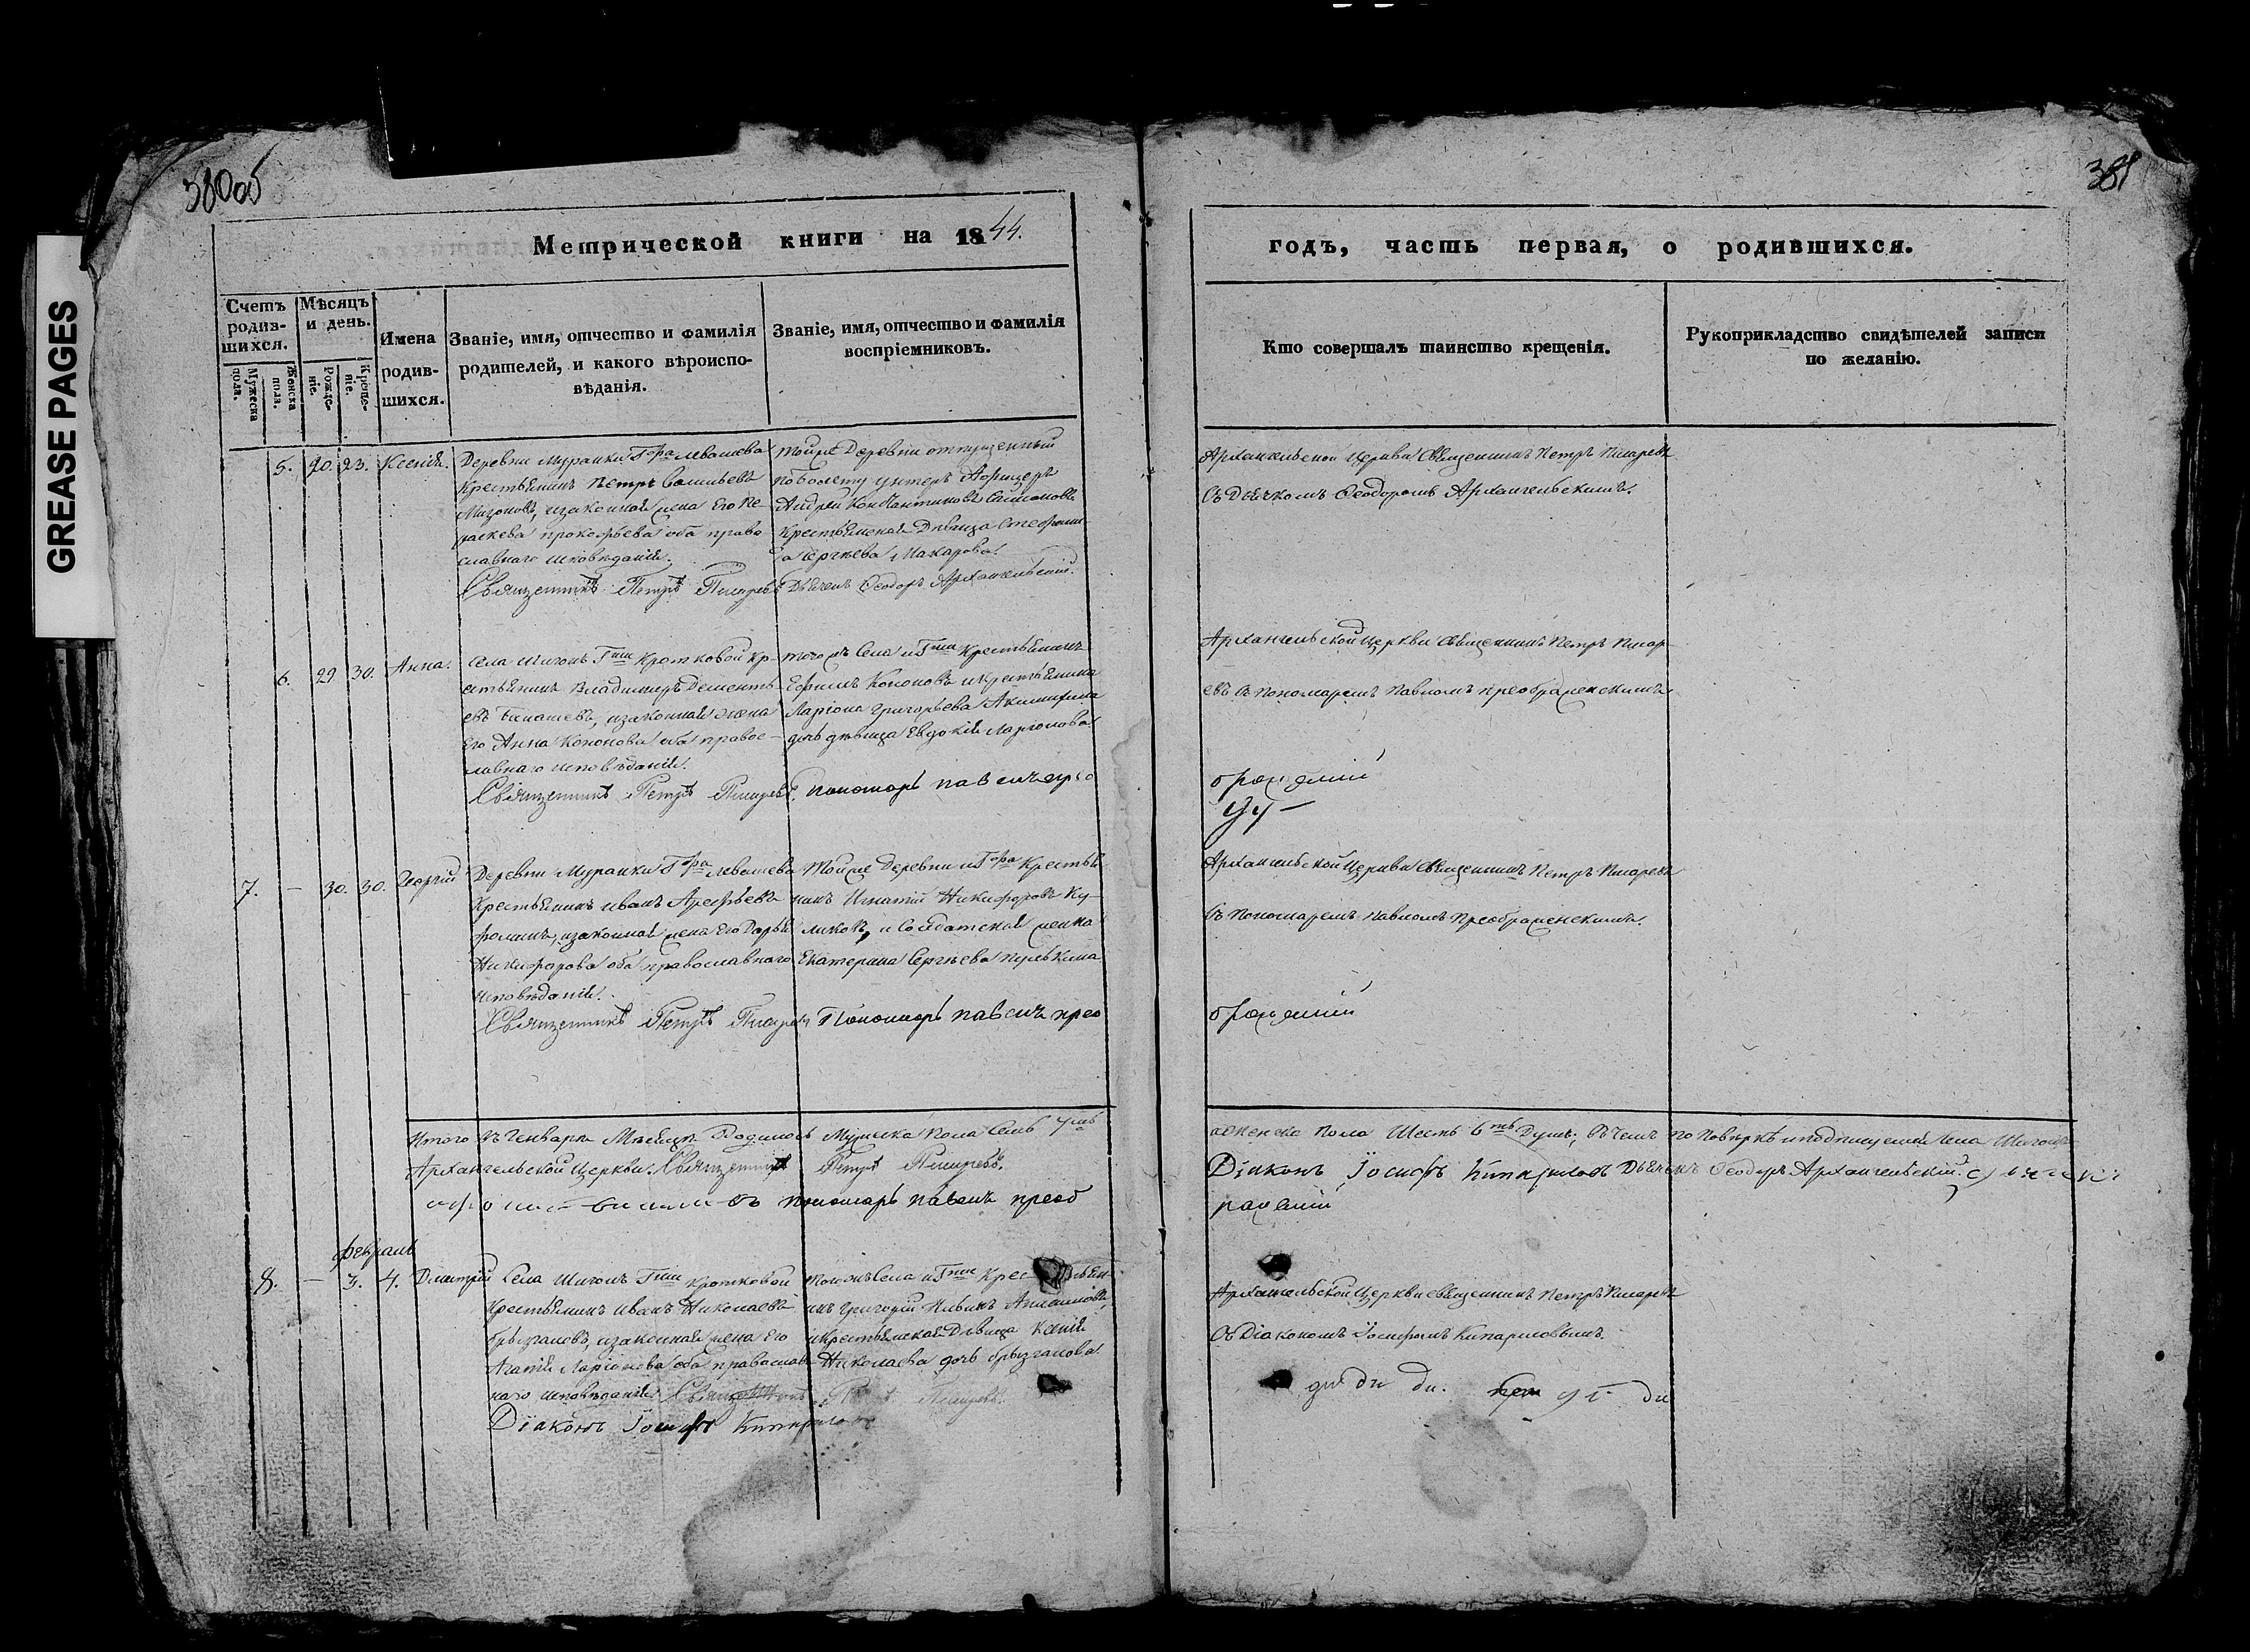 380об
381
GREASE PAGES
Метрической книги на 1844.
годъ, часть первая, о родившихся.
Счетъ родив-шихся.
Мѣсяцъ и день.
Мужеска пола.
Женска пола.
Рожде-ніе.
Креще-ніе.
Имена родив-шихся.
Званіе, имя, отчество и фамилія
родителей, и какого вѣроиспо-
вѣданія.
Званіе, имя, отчество и фамилія
воспріемниковъ.
Кто совершалъ таинство крещенія.
Рукоприкладство свидѣтелей записи
по желанію.
5. 20. 23. Ксенія.
Деревни Муранки Гра Левашева
Крестьянинъ Петръ Васильевъ
изаконная жена Его Па-
раскева Прокофьева оба право
славнаго исповѣданія.
Священникъ Петръ Писаревъ
Тойже Деревни отпущенный
по болету унтеръ Афицеръ
Андрей Константиновъ
Крестьянская Дѣвица Стефани
да Сергѣева Макарова.
Дьячекъ Феодоръ Архангельский.
Архангельской Церкви Священникъ Петръ Писаревъ
Съ Дьячкомъ Феодоромъ Архангельскимъ.
6. 29 30. Анна.
Села Шигонъ Гжи Кротковой Кр-
естьянинъ Владимиръ Дементь
евъ изаконная жена
Его Анна Кононова оба правос-
лавнаго исповѣданія.
Священникъ Петръ Писаревъ.
того жъ Села и Гжи Крестьянинъ
Ефимъ Кононовъ и крестьянина
Ларіона Григорьева
дочь дѣвица Евдокія Ларіонова.
Пономарь Павелъ прео
Архангельской Церкви Священникъ Петръ Писар-
евъ съ Пономаремъ Павломъ Преображенскимъ
браженскій
7. — 30. 30. Георгій
Деревни Муранки Гра Левашева
Крестьянинъ Иванъ Арефьевъ
изаконная жена Его Дарья
Никифорова оба православнаго
исповѣданія.
Священникъ Петръ Писаревъ
Тойже Деревни и Гра Крестья-
нинъ Игнатій Никифоровъ Ку-
ликовъ, и Солдатская женка
Екатерина Сергѣева
Пономарь Павелъ прео
Архангельской Церкви Священникъ Петръ Писаревъ
Съ Пономаремъ Павломъ Преображенскимъ.
браженскій
Итого въ Генваре Мѣсяцѣ Родилось Мужеска Пола Семь 7мь
а Женска Пола Шесть 6ть Душъ; въ чемъ по повѣркѣ и подписуемся Села Шигонъ
Архангельской Церкви. Священникъ Петръ Писаревъ.
Діаконъ Іосифъ Кипарисовъ Дьячекъ Феодоръ Архангельскій
Пономарь Павелъ преоб
раженскій
Февраль
8. — 3. 4. Дмитрій
Села Шигонъ Гжи Кротковой
Крестьянинъ Иванъ Николаевъ
Брызгаловъ, изаконная жена Его
Агапія Ларіонова оба православ
наго исповѣданія. Священникъ Петръ Писаревъ.
Діаконъ Іосифъ Кипарисовъ
Тогожъ Села и Гжи Крестьян-
инъ Григорій Ильинъ
и крестьянская Дѣвица Ксенія
Николаева дочь Брызгалова.
Архангельской Церкви священникъ Петръ Писаревъ
Съ Діакономъ Іосифомъ Кипарисовымъ.